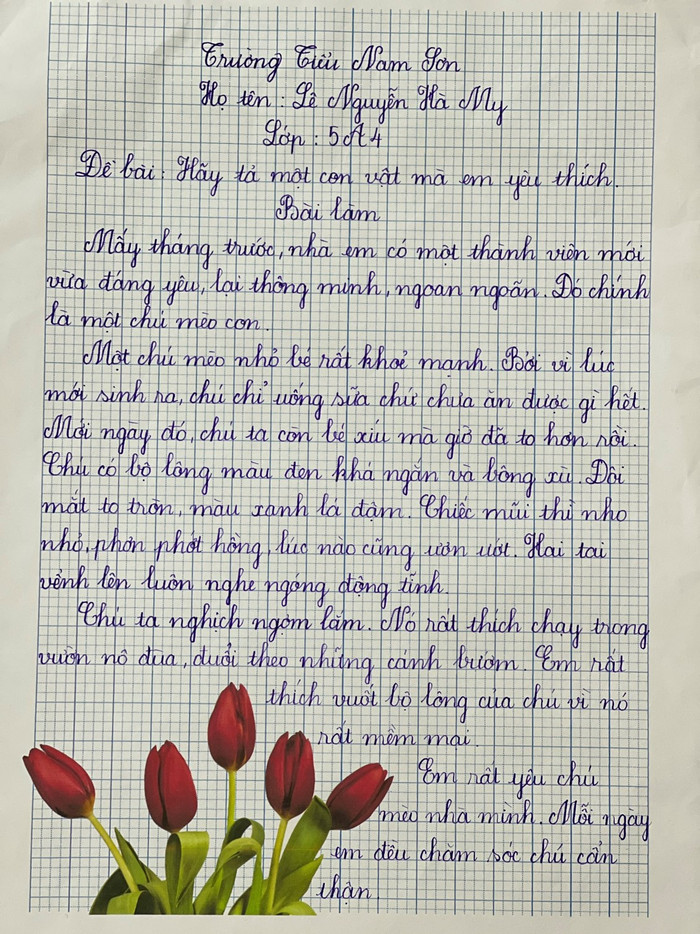 Trường Tiểu Nam Sơn
Họ tên : Lê Nguyễn Hà My
Lớp : 5A4
Đề bài : Hãy tả một con vật mà em yêu thích.
Bài làm
Mấy tháng trước, nhà em có một thành viên mới
vừa đáng yêu, lại thông minh, ngoan ngoãn. Đó chính
là một chú mèo con.
Một chú mèo nhỏ bé rất khoẻ mạnh. Bởi vì lúc
mới sinh ra, chú chỉ uống sữa chứ chưa ăn được gì hết.
Mới ngày đó, chú ta còn bé xíu mà giờ đã to hơn rồi.
Chú có bộ lông màu đen khá ngắn và bông xù. Đôi
mắt to tròn, màu xanh lá đậm. Chiếc mũi thì nho
nhỏ, phơn phớt hồng, lúc nào cũng ươn ướt. Hai tai
vểnh lên luôn nghe ngóng động tĩnh.
Chú ta nghịch ngợm lắm. Nó rất thích chạy trong
vườn nô đùa, đuổi theo những cánh bướm. Em rất
thích vuốt bộ lông của chú vì nó
rất mềm mại.
Em rất yêu chú
mèo nhà mình. Mỗi ngày
em đều chăm sóc chú cẩn
thận